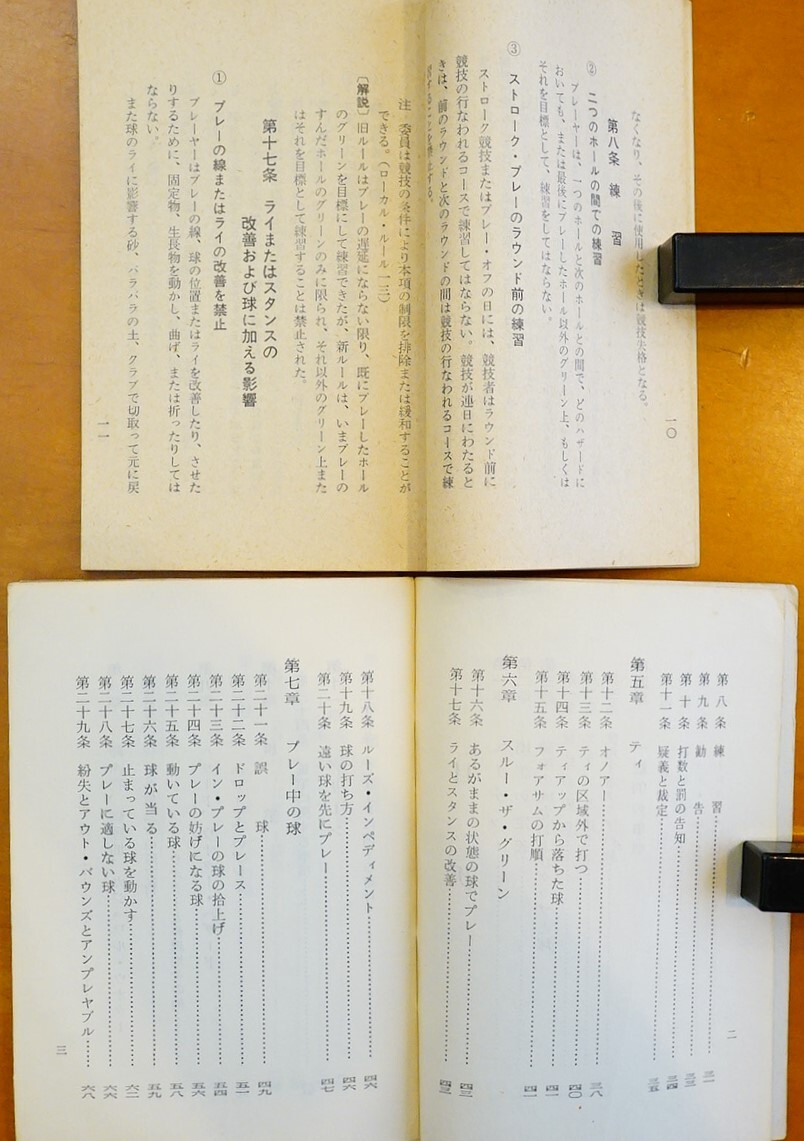 なくなり、その後に使用したときは競技失格となる。
第八条 練 習
② 二つのホールの間での練習
プレーヤーは、一つのホールと次のホールとの間で、どのハザードに
おいても、または最後にプレーしたホール以外のグリーン上、もしくは
それを目標として、練習をしてはならない。
③ ストローク・プレーのラウンド前の練習
ストローク競技またはプレー・オフの日には、競技者はラウンド前に
競技の行なわれるコースで練習してはならない。競技が連日にわたると
きは、前のラウンドと次のラウンドの間は競技の行なわれるコースで練
一〇
注 委員は競技の条件により本項の制限を排除または緩和することが
できる。(ローカル・ルール一三)
〔解説〕旧ルールはプレーの遅延にならない限り、既にプレーしたホール
のグリーンを目標にして練習できたが、新ルールは、いまプレーの
すんだホールのグリーンのみに限られ、それ以外のグリーン上また
はそれを目標として練習することは禁止された。
第十七条 ライまたはスタンスの
改善および球に加える影響
① プレーの線またはライの改善を禁止
プレーヤーはプレーの線、球の位置またはライを改善したり、させた
りするために、固定物、生長物を動かし、曲げ、または折ったりしては
ならない。
また球のライに影響する砂、バラバラの土、クラブで切取って元に戻
一一
第八条 練 習……三一
第九条 勧 告……三三
第十条 打数と罰の告知……三四
第十一条 疑義と裁定……三五
第五章 ティ
第十二条 オノアー……三八
第十三条 ティの区域外で打つ……四〇
第十四条 ティアップから落ちた球……四一
第十五条 フォアサムの打順……四一
第六章 スルー・ザ・グリーン
第十六条 あるがままの状態の球でプレー……四三
第十七条 ライとスタンスの改善……四三
二
第十八条 ルーズ・インペディメント……四六
第十九条 球の打ち方……四六
第二十条 遠い球を先にプレー……四七
第七章 プレー中の球
第二十一条 誤 球……四九
第二十二条 ドロップとプレース……五一
第二十三条 イン・プレーの球の拾上げ……五四
第二十四条 プレーの妨げになる球……五六
第二十五条 動いている球……五八
第二十六条 球が当る……五九
第二十七条 止まっている球を動かす……六二
第二十八条 プレーに適しない球……六六
第二十九条 紛失とアウト・バウンズとアンプレヤブル……六八
三